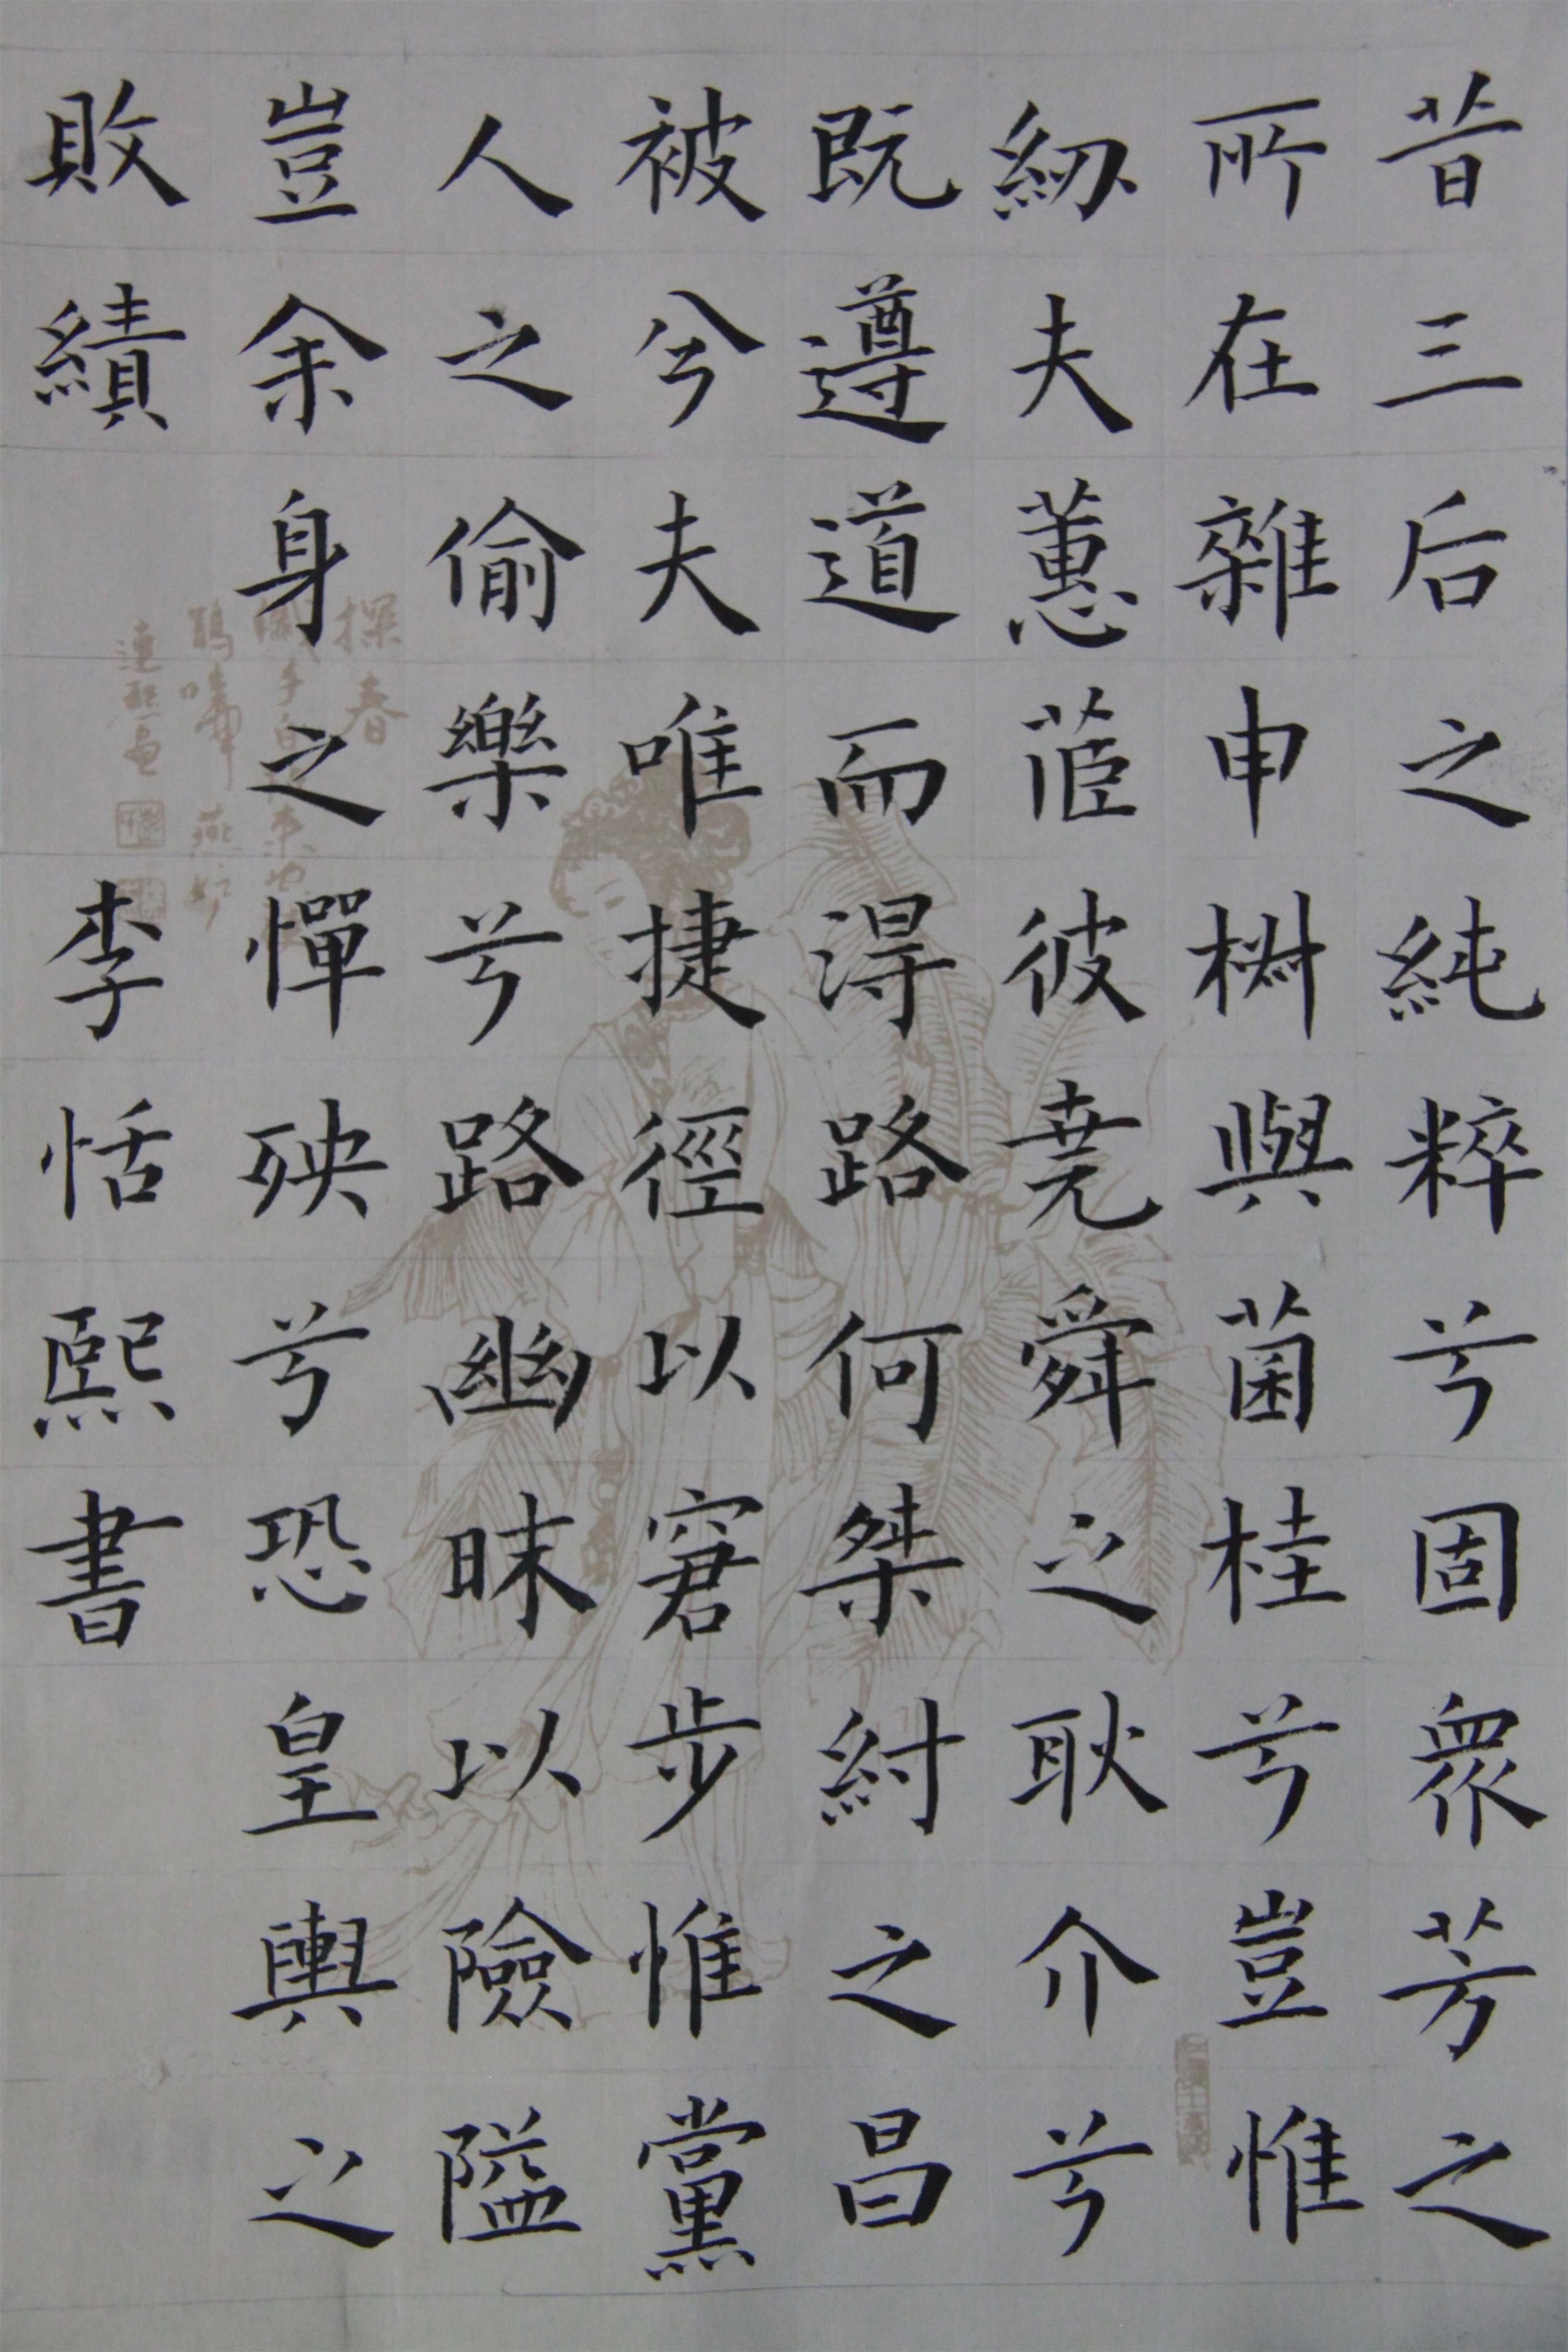 昔三后之純粹兮固衆芳之
所在雜申椒與菌桂兮豈惟
紉夫蕙茝彼堯舜之耿介兮
既遵道而得路何桀紂之昌
被兮夫唯捷徑以窘步惟黨
人之偷樂兮路幽昧以險隘
豈余身之憚殃兮恐皇輿之
敗績
李恬熙書
探春